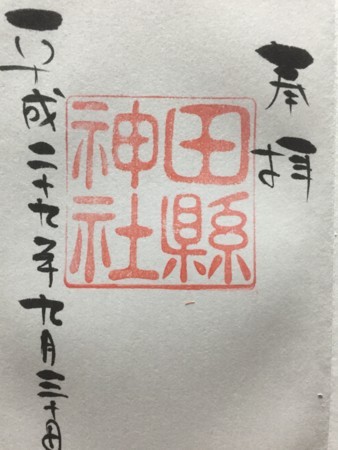 奉拝
田縣
神社
平成二十九年九月三十日